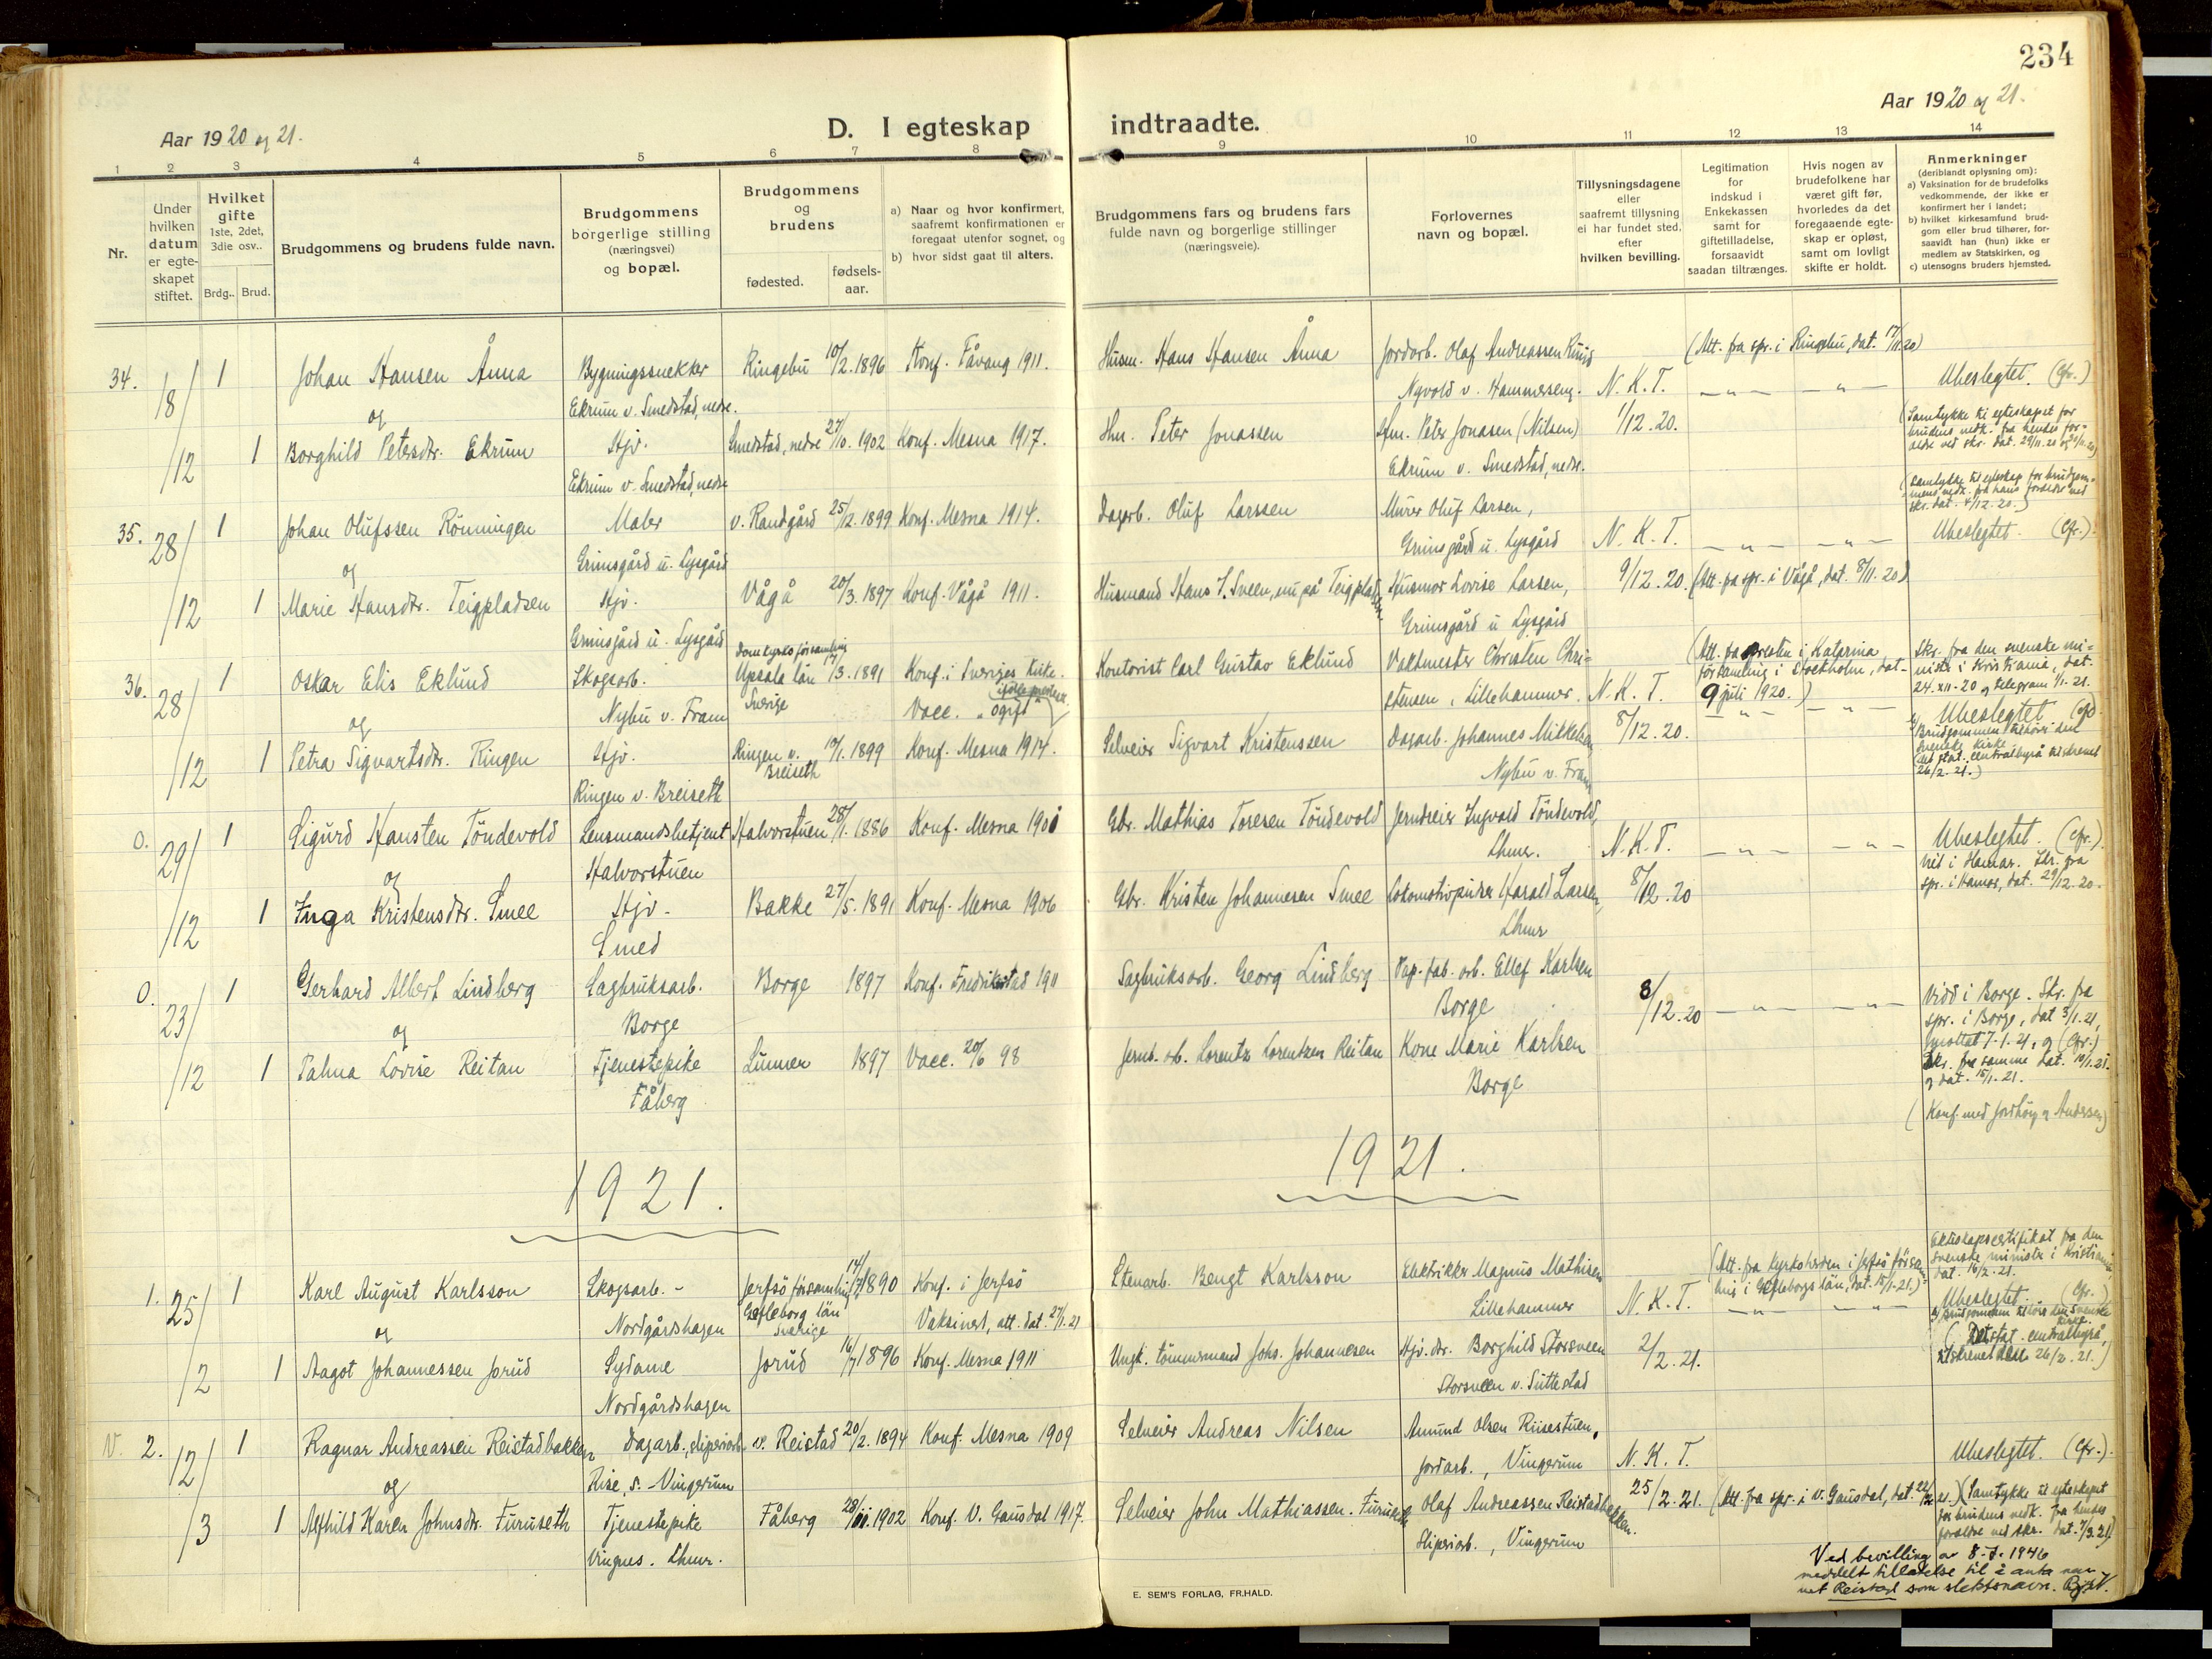 234
Aar 1920 og 21.
D. I egteskap indtraadte.
Aar 1920 og 21.
1 2 3 4 5 6 7 8 9 10 11 12 13 14
Nr.
Under hvilken datum er egteskapet stiftet.
Hvilket gifte 1ste, 2det, 3die osv..
Brdg..
Brud.
Brudgommens og brudens fulde navn.
Brudgommens borgerlige stilling (næringsvei) og bopæl.
Brudgommens og brudens
fødested.
fødsels-aar.
a) Naar og hvor konfirmert, saafremt konfirmationen er foregaat utenfor sognet, og
b) hvor sidst gaat til alters.
Brudgommens fars og brudens fars fulde navn og borgerlige stillinger (næringsveie).
Forlovernes navn og bopæl.
Tillysningsdagene eller saafremt tillysning ei har fundet sted, efter hvilken bevilling.
Legitimation for indskud i Enkekassen samt for giftetilladelse, forsaavidt saadan tiltrænges.
Hvis nogen av brudefolkene har været gift før, hvorledes da det foregaaende egteskap er opløst, samt om lovligt skifte er holdt.
Anmerkninger
(deriblandt oplysning om):
a) Vaksination for de brudefolks vedkommende, der ikke er konfirmert her i landet;
b) hvilket kirkesamfund brudgom eller brud tilhører, forsaavidt han (hun) ikke er medlem av Statskirken, og
c) utensogns bruders hjemsted.
34. 18/12 1 Johan Hansen Ånna
Bygningssnekker
Ekrum v. Smedstad, nedre.
Ringebu 10/2. 1896 Konf. Fåvang 1911.
Husm. Hans Hansen Ånna
Jordarb. Olaf Andreassen
Nyvold v. Hammerseng.
N. K. T.
1/12. 20.
(Att. fra spr. i Ringebu, dat. 17/11 20)
Ubeslegtet. (Cfr.)
og
1 Borghild Petersdtr. Ekrum
Hjv.
Ekrum v. Smedstad, nedre
Smedstad, nedre 27/10. 1902 Konf. Mesna 1917.
Hm. Peter Jonassen
Hm. Peter Jonasen (Nilsen)
Ekrum v. Smedstad, nedr.
(Samtykke til egteskapet for brudens vedk. fra hendes forældre ved skr. dat. 29/11. 20
35. 28/12 1 Johan Olufssen Rönningen
Maler
Grimsgård u. Lysgård
v. Randgård 25/12. 1899 Konf. Mesna 1914.
Dagarb. Oluf Larssen
Murer Oluf Larsen,
Grimsgård u. Lysgård
N. K. T.
9/12. 20.
(Samtykke til egteskap for brudgommens vedk. fra hans forældre ved skr. dat. 4/12. 20.)
Ubeslegtet. (Cfr.)
og
1 Marie Hansdtr. Teigpladsen
Hjv.
Grimsgård u. Lysgård
Vågå 20/3. 1897 Konf. Vågå 1911.
Husmand Hans J. Sveen, nu på Teigpladsen
Husmor Lovise Larsen,
Grimsgård u Lysgård
(Att. fra spr. i Vågå, dat. 8/11. 20)
36. 28/12 1 Oskar Elis Eklund
Skogsarb.
Nybu v. Fram
Domkyrkoförsamling
Upsala län 17/3. 1891
Sverige
Konf. i Sveriges kirke.
Vacc. "ogift"
Kontorist Carl Gustav Eklund
Vaktmester Christen Christensen, Lillehammer.
N. K. T.
8/12. 20.
(Att. fra presten i Katarina församling i Stockholm, dat. 9 juli 1920.)
Skr. fra den svenske minister i Kristiania, dat. 24. XII. 20 og telegram 1/1. 21.
Ubeslegtet (cfr.)
Brudgommen tilhörer den svenske kirke
(det stat. centralbyrå tilskrevet 26/2. 21.)
og
1 Petra Sigvartsdtr. Ringen
Hjv.
Ringen v. Breiseth
Ringen v. Breiseth 19/1. 1899 Konf. Mesna 1914.
Selveier Sigvart Kristenssen
Dagarb. Johannes Mikkelsen
Nybu v. Fram
0. 29/12 1 Sigurd Hansten Töndevold
Lensmandsbetjent
Halvorstuen
Halvorstuen 28/1. 1886 Konf. Mesna 1901
Gbr. Mathias Toresen Töndevold
Jerndreier Ingvald Töndevold,
Lhmr.
N. K. T.
8/12. 20
Ubeslegtet. (Cfr.)
Viet i Hamar. Skr. fra spr. i Hamar, dat. 29/12. 20.
og
1 Inga Kristensdtr. Smee
Hjv.
Smed
Bakke 27/5. 1891 Konf. Mesna 1906
Gbr. Kristen Johannesen Smee
Lokomotivpudser Harald Larsen,
Lhmr
0. 23/12 1 Gerhard Albert Lindberg
Sagbruksarb.
Borge
Borge 1897 Konf. Fredrikstad 1911
Sagbruksarb. Georg Lindberg
Pap. fab. arb. Ellef Karlsen
Borge
8/12. 20
Viet i Borge. Skr. fra spr. i Borge, dat 3/1. 21, mottat 7-1. 21, og (Cfr.) skr. fra samme dat. 10/1. 21. og dat. 15/1. 21.
(Konf. med Andersen)
og
1 Palma Lovise Reitan
Tjenestepike
Fåberg
Lunner 1897 Vacc. 20/6 98
Jernb. arb. Lorentz Lorentzen Reitan
Kone Marie Karlsen
Borge
1921.
1921.
1. 25/2 1 Karl August Karlsson
Skogsarb. -
Nordgårdshagen
Jerfsö församling 14/7 1890
Gefleborg län
Sverige
Konf. i Jerfsö
Vaksinert, att. dat. 27/1. 21
Stenarb. Bengt Karlsson
Elektrikker Magnus Mathisen
Lillehammer
N. K. T.
2/2. 21.
(Att. fra kyrkoherden i Jerfsö församling i Gefleborgs län, dat. 15/1. 21.)
Ekteskapscertifikat fra den svenske minister i Kristiania dat. 16/2. 21.
Ubeslegtet. (Cfr.)
b) Brudgommen tilhörer den svenske kirke.
(Det stat. centralbyrå, tilskrevet den 26/2. 21.)
og
1 Aagot Johannessen Jorud
Sydame
Nordgårdshagen
Jorud 16/7 1896 Konf. Mesna 1911
Ungk. tömmermand Johs. Johannesen
Hjv. dtr. Borghild Storsveen
Storsveen v. Suttestad
V. 2. 12/3 1 Ragnar Andreassen Reistadbakken
Dagarb., sliperiarb.
Rise, s. Vingerum
v. Reistad 20/2. 1894 Konf. Mesna 1909
Selveier Andreas Nilsen
Amund Olsen Riisestuen,
Jordarb., Vingerum
N. K. T.
25/2. 21.
Ubeslegtet. (Cfr.)
og
1 Alfhild Karen Johnsdtr. Furuseth
Tjenestepike
Vingnes. Lhmr.
Fåberg 28/11. 1902 Konf. V. Gausdal 1917.
Selveier John Mathiassen Furuseth
Olaf Andreassen Reistadbakken.
Sliperiarb., Vingerum
(Att. fra spr. i V. Gausdal, dat. 22/2 21.)
(Samtykke til egteskapet for brudens vedk. fra hendes forældre ved skr. dat. 7/3. 21)
Ved bevilling av 8-7-1946
meddelt tillatelse til å anta nav-
net Reistad som slektsnavn.
E. SEM'S FORLAG, FR.HALD.